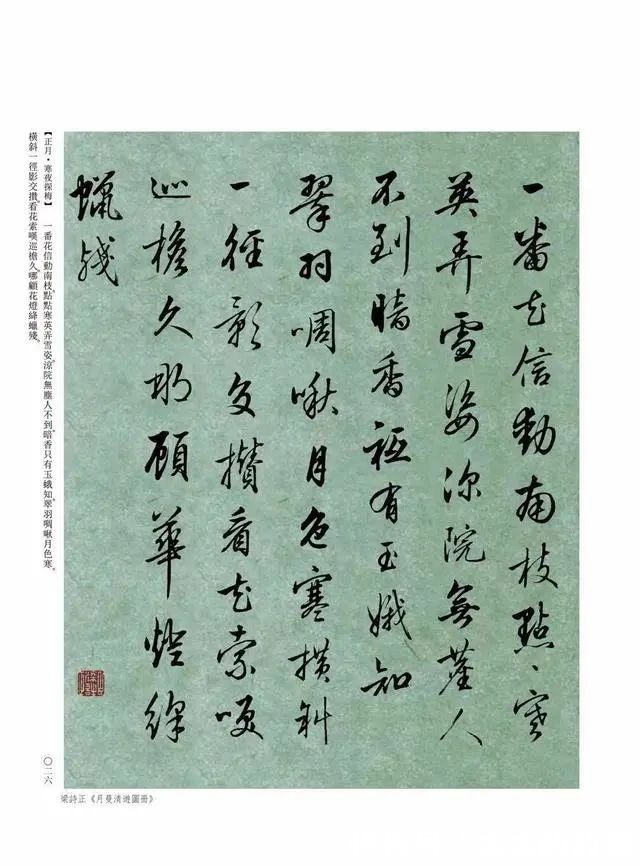 一番花信動南枝點點寒
英弄雪姿深院無塵人
不到暗香祗有玉娥知
翠羽啁啾月色寒横斜
一徑影交攢看花索嘆
巡檐久那顧華燈絳
蠟殘
【正月·寒夜探梅】 一番花信動南枝。點點寒英弄雪姿。涼院無塵人不到。暗香只有玉蛾知。翠羽啁啾月色寒。
橫斜一徑影交攢。看花索嘆巡檐久。哪顧花燈絳蠟殘。
〇二六
梁詩正《月曼清遊圖冊》